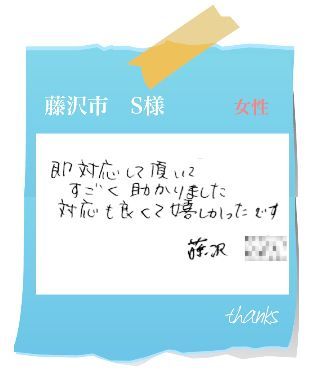 藤沢市　S様　女性
即対応して頂いて
すごく助かりました
対応も良くて嬉しかったです
藤沢
thanks